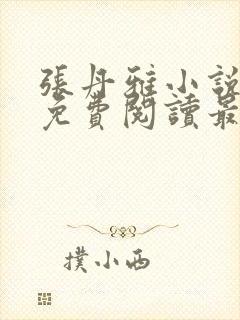 張丹雅小說
免費閱讀最
撲小西